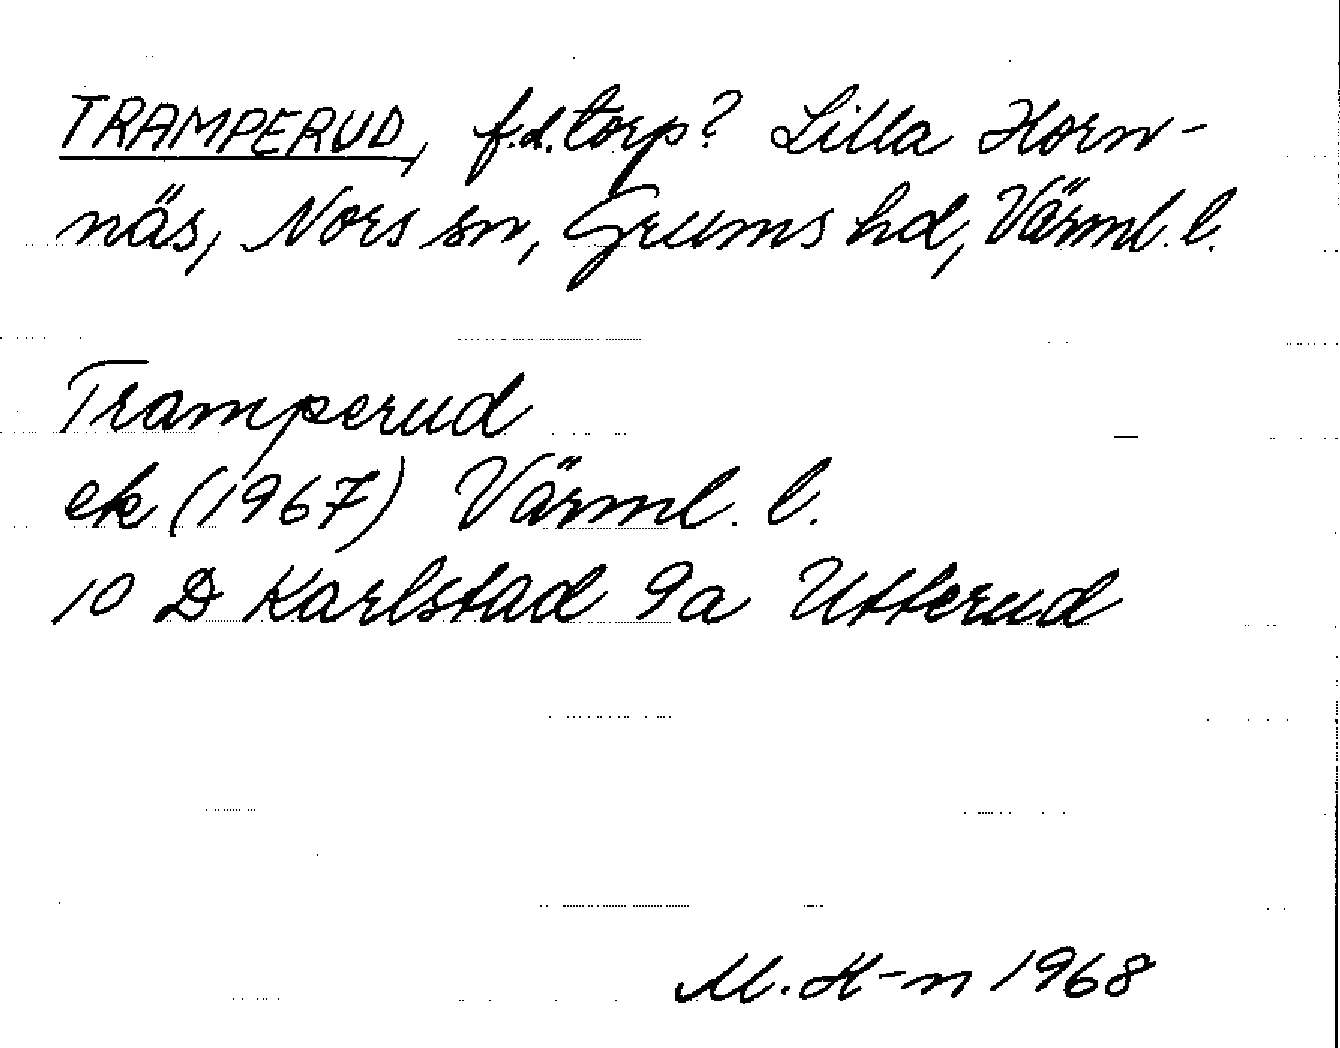 TRAMPERUD, f.d. torp? Lilla Horn-
näs, Nors sn, Grums hd, Värml. l.
Tramperud
ek (1967) Värml. l.
10 D Karlstad 9a Utterud
M. H-n 1968